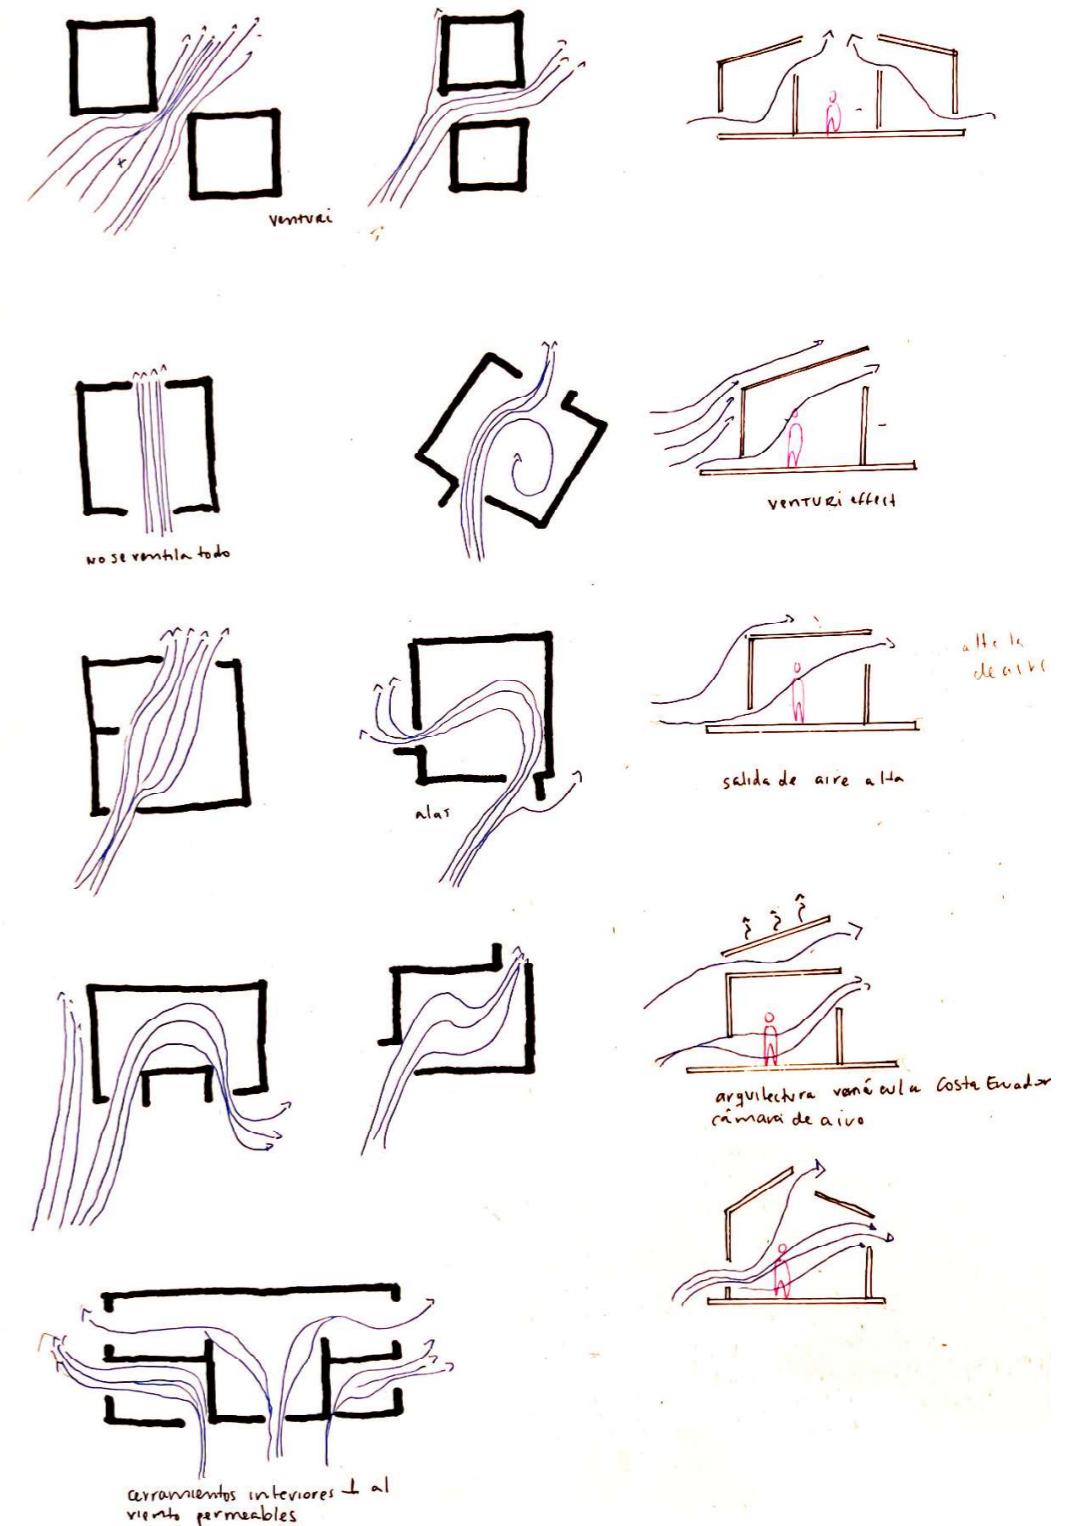 venturi
no se ventila todo
venturi effect
alas
salida de aire alta
arquitectura vernácula Costa Ecuador
cámara de aire
cerramientos interiores ⊥ al
viento permeables